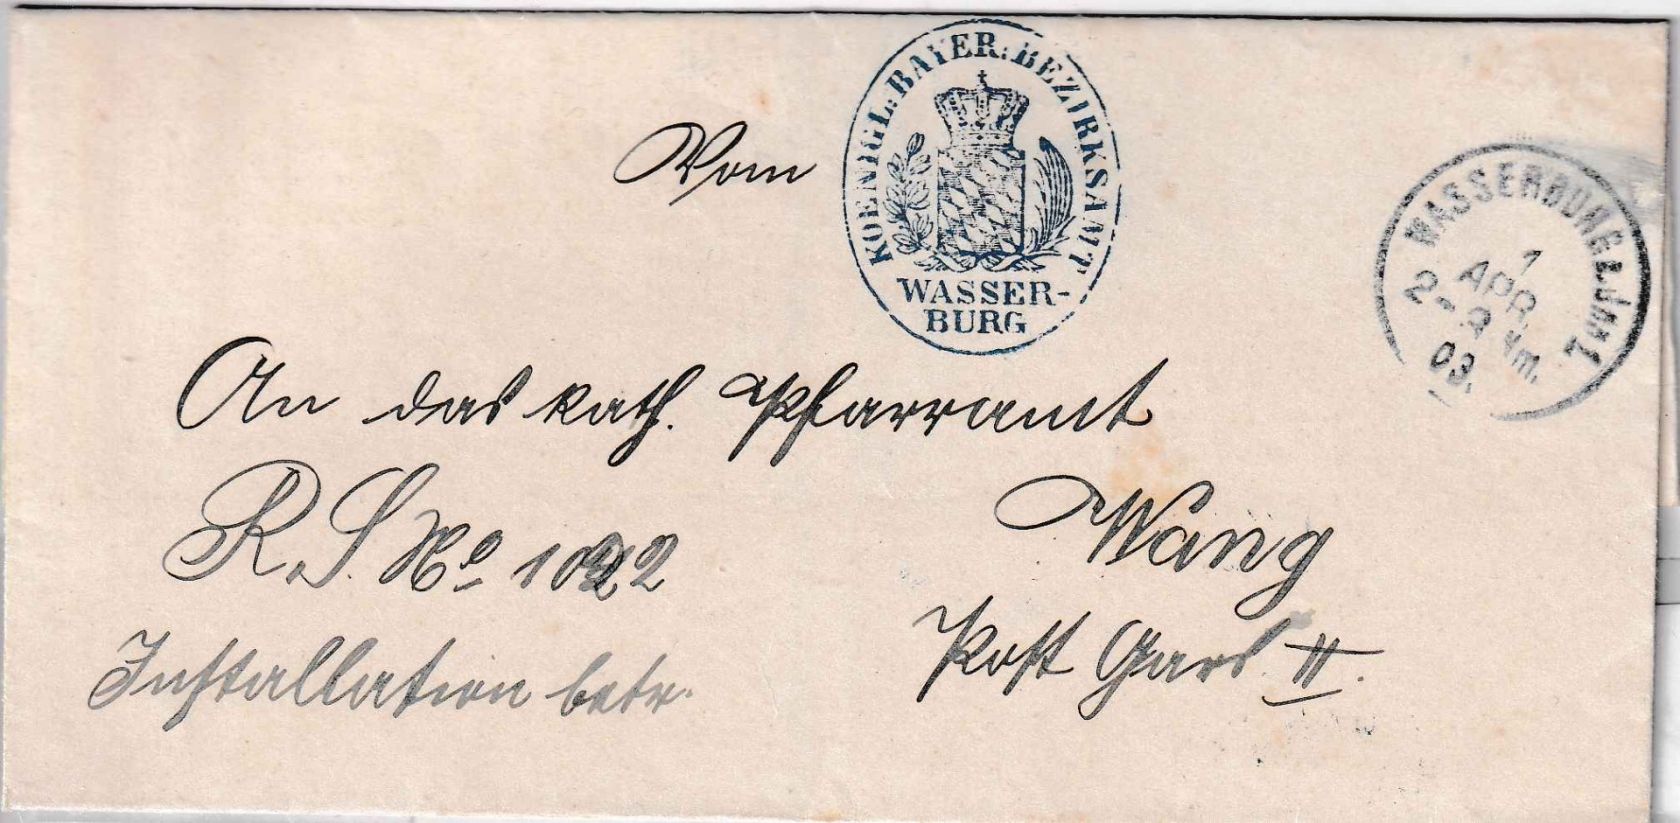 Vom
KOENIGL. BAYER. BEZIRKSAMT
WASSER-
BURG
WASSERBURG a. Jnn 1
1
APR.
2-3 Nm.
03.
An das kath. Pfarramt
Wang
R. S. No 1022
Post Gars II.
Installation betr.